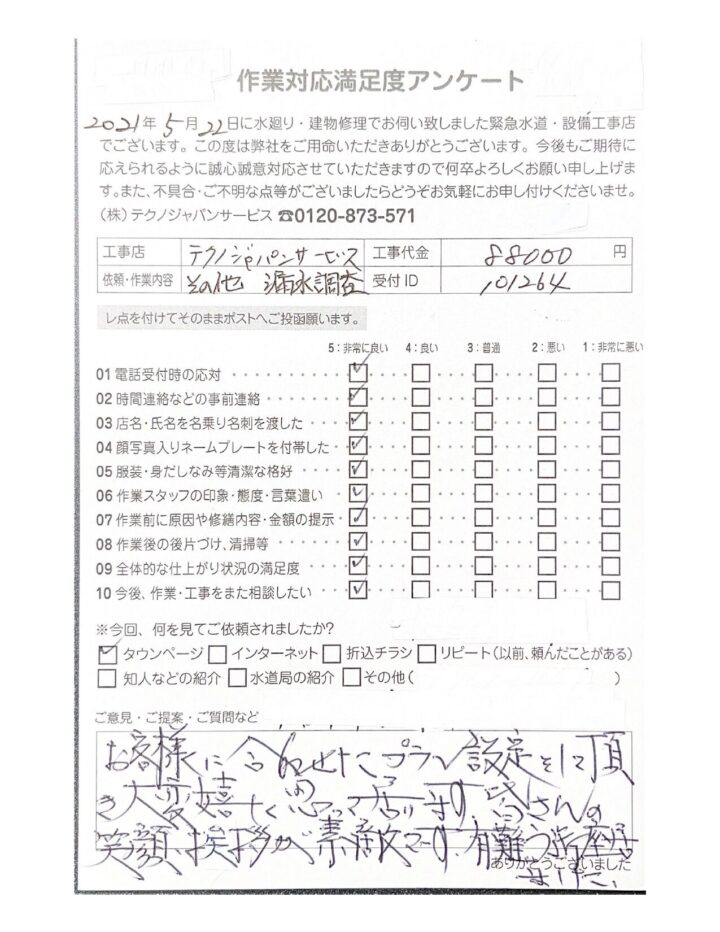 作業対応満足度アンケート
2021年 5月 22日に水廻り・建物修理でお伺い致しました緊急水道・設備工事店
でございます。この度は弊社をご用命いただきありがとうございます。今後もご期待に
応えられるように誠心誠意対応させていただきますので何卒よろしくお願い申し上げま
す。また、不具合・ご不明な点等がございましたらどうぞお気軽にお申し付けくださいませ。
(株)テクノジャパンサービス ☎0120-873-571
工事店 テクノジャパンサービス 工事代金 88000 円
依頼・作業内容 その他 漏水調査 受付ID 101264
レ点を付けてそのままポストへご投函願います。
5:非常に良い 4:良い 3:普通 2:悪い 1:非常に悪い
01 電話受付時の応対
02 時間連絡などの事前連絡
03 店名・氏名を名乗り名刺を渡した
04 顔写真入りネームプレートを付帯した
05 服装・身だしなみ等清潔な格好
06 作業スタッフの印象・態度・言葉遣い
07 作業前に原因や修繕内容・金額の提示
08 作業後の後片づけ、清掃等
09 全体的な仕上がり状況の満足度
10 今後、作業・工事をまた相談したい
※今回、何を見てご依頼されましたか?
タウンページ インターネット 折込チラシ リピート(以前、頼んだことがある)
知人などの紹介 水道局の紹介 その他( )
ご意見・ご提案・ご質問など
お客様に合わせたプラン設定をして頂
き大変嬉しく思って居りす 皆さんの
笑顔、挨拶が素敵です。有難う御座居
ました
ありがとうございました